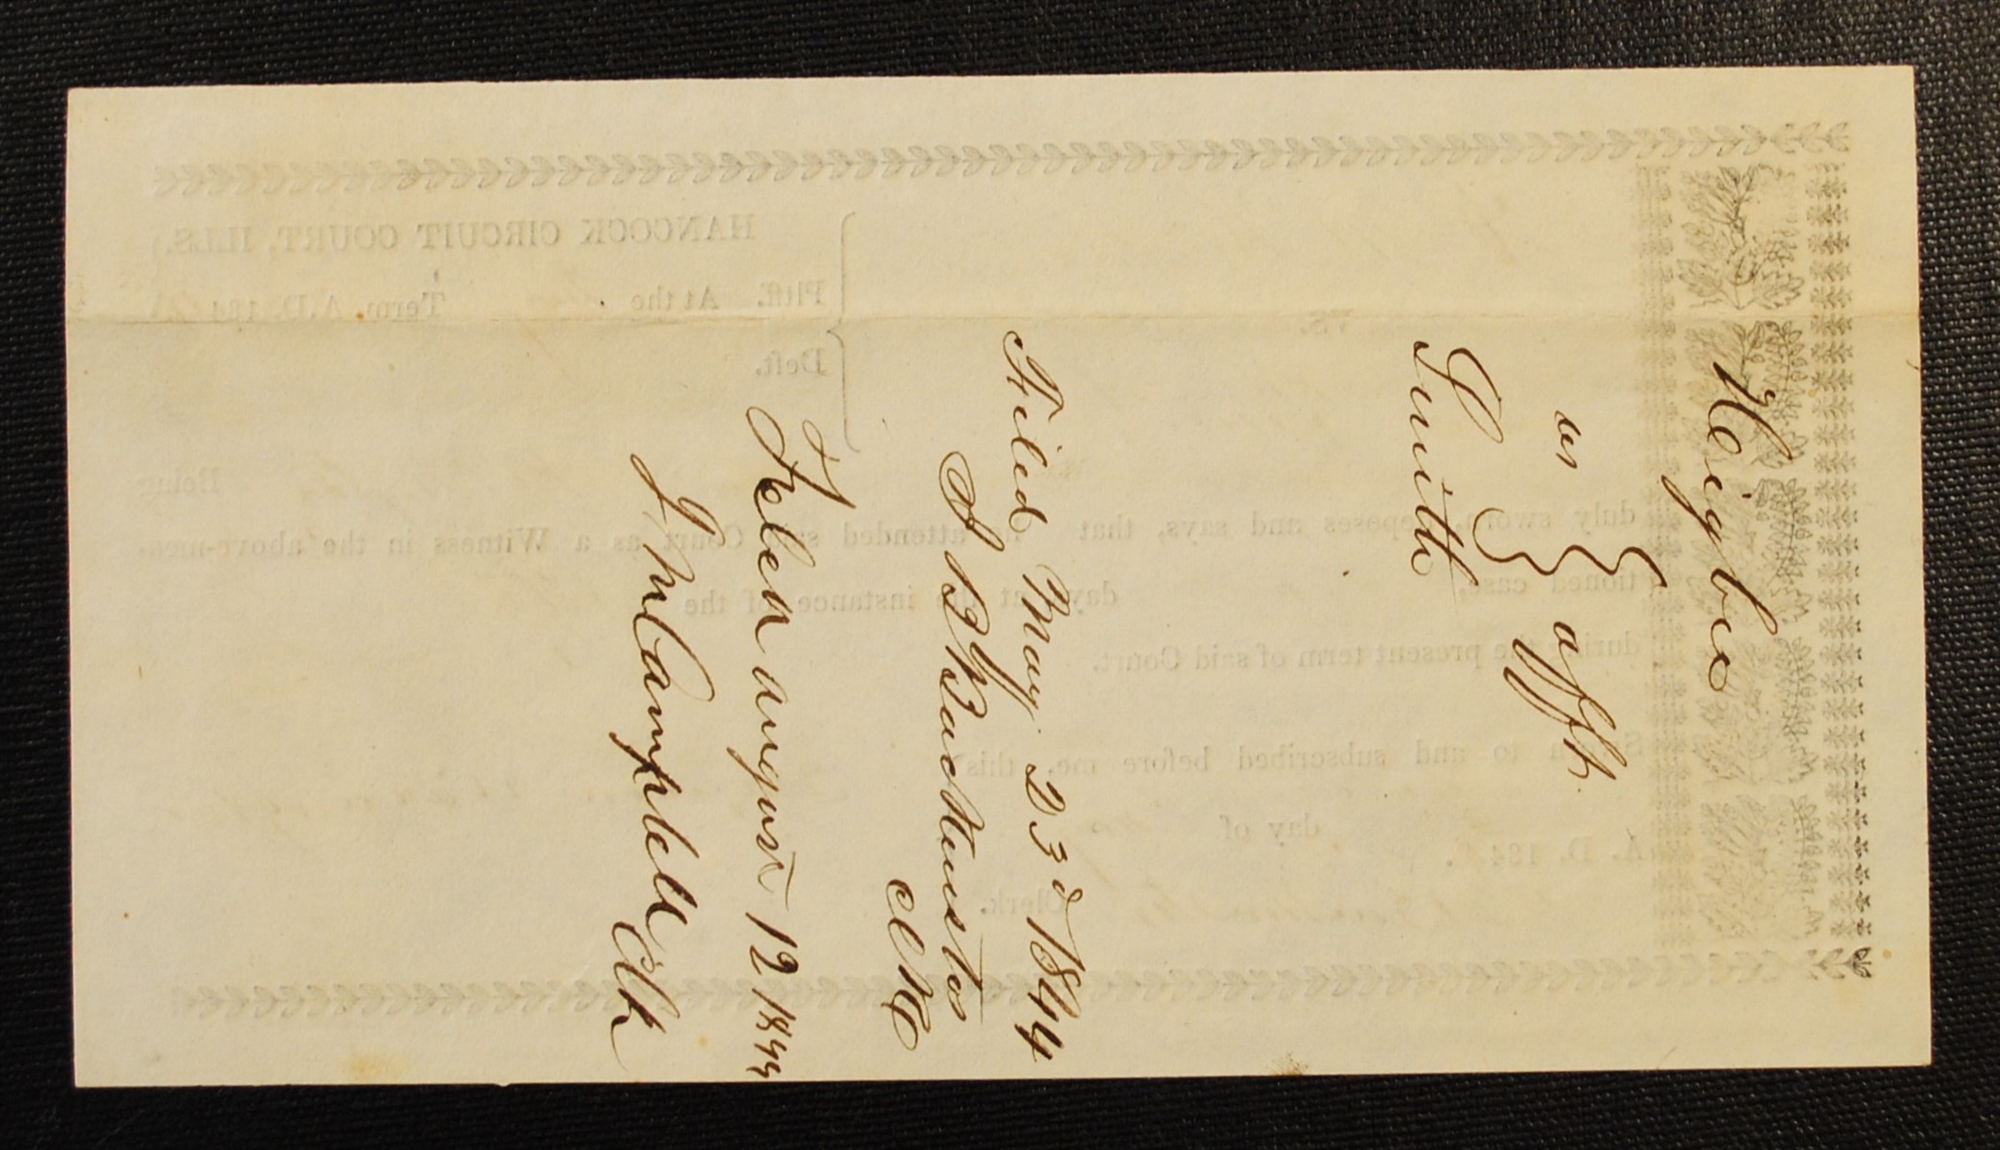 Higbee
vs } afft.
Smith
Filed May 23d 1844
J B Backenstos
Clk
Filed august 12 1844
J McCampbell Clk
HANCOCK CIRCUIT COURT, ILLS.
Pltff. At the Term, A.D. 184
VS.
Deft.
Being
duly sworn, deposes and says, that he attended said Court as a Witness in the above-men-
tioned case, days at the instance of the
during the present term of said Court.
Sworn to and subscribed before me, this
day of
A. D. 184
Clerk.